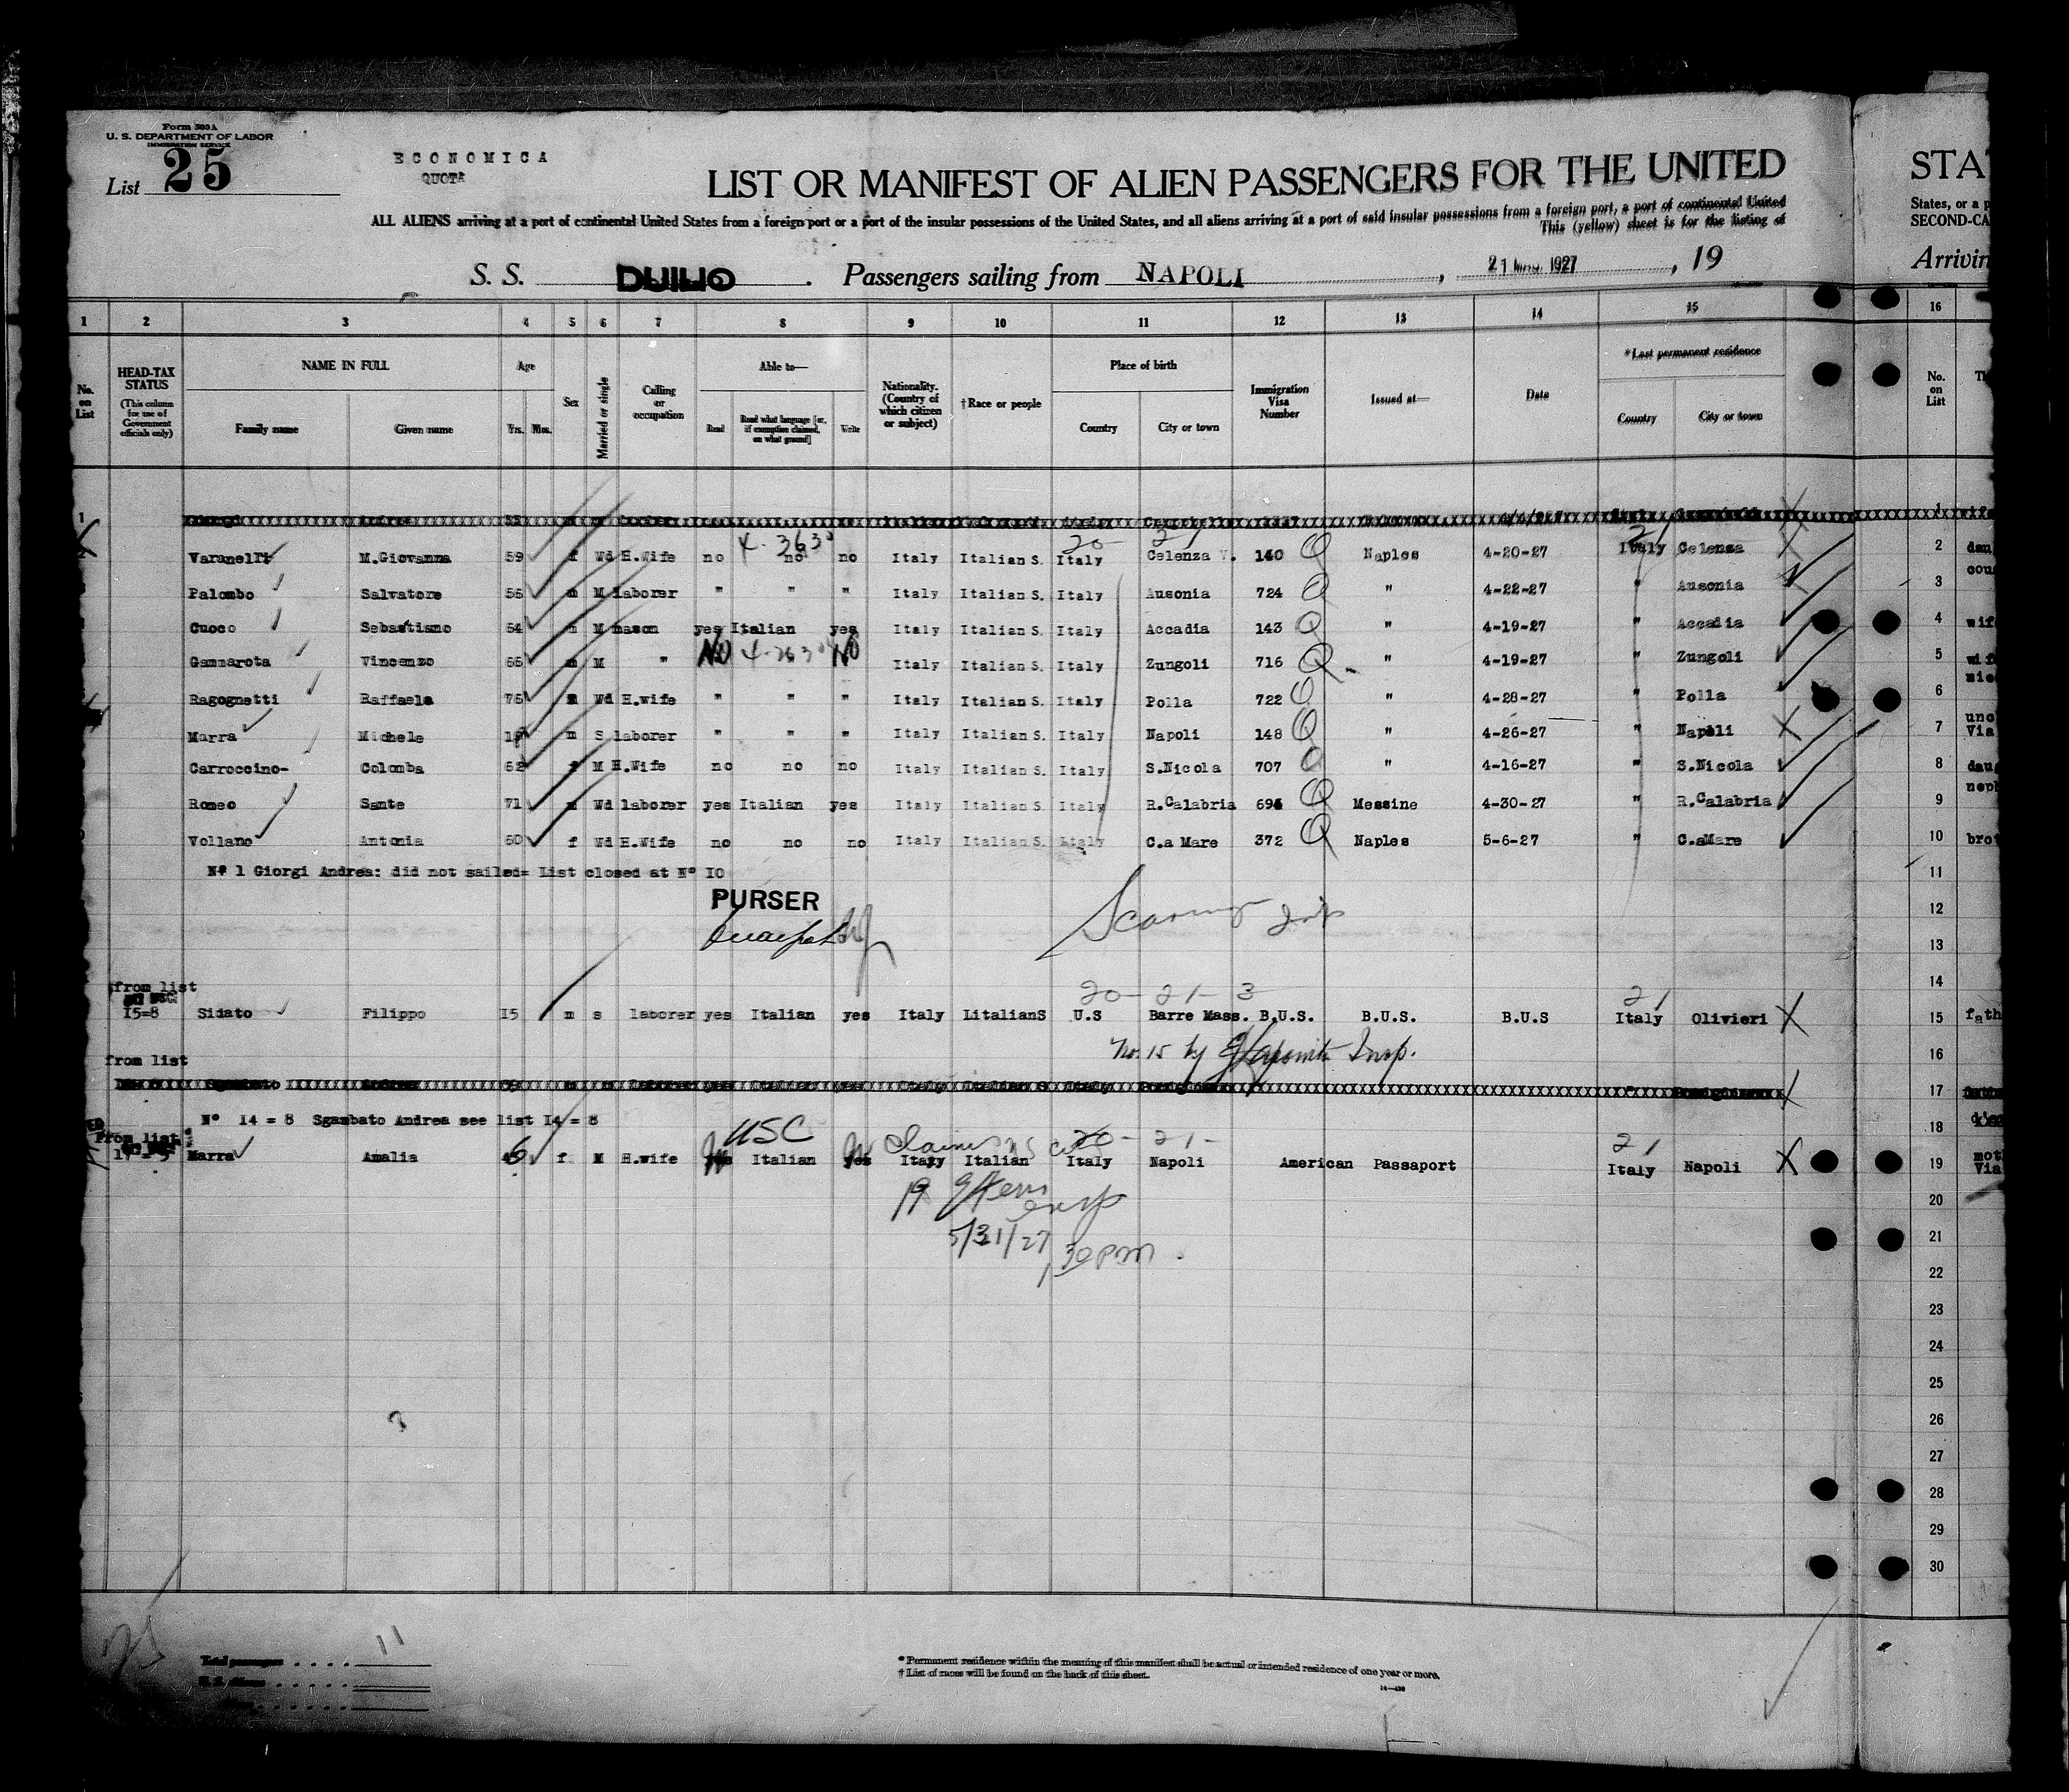 Form 303 A
U. S. DEPARTMENT OF LABOR
IMMIGRATION SERVICE
List 25
ECONOMICA
QUOTA
LIST OR MANIFEST OF ALIEN PASSENGERS FOR THE UNITED
STA
ALL ALIENS arriving at a port of continental United States from a foreign port or a port of the insular possessions of the United States, and all aliens arriving at a port of said insular possessions from a foreign port, a port of continental United
States, or a p
This (yellow) sheet is for the listing of
SECOND-CA
S. S. DUILIO. Passengers sailing from NAPOLI, 21 1927, 19
Arrivin
1 2 3 4 5 6 7 8 9 10 11 12 13 14 15 16
No. on List
HEAD-TAX STATUS (This column for use of Government officials only)
NAME IN FULL Family name Given name
Age Yrs. Mos.
Sex
Married or single
Calling or occupation
Able to— Read Read what language [or, if exemption claimed, on what ground] Write
Nationality. (Country of which citizen or subject)
†Race or people
Place of birth Country City or town
Immigration Visa Number
Issued at—
Date
*Last permanent residence Country City or town
No. on List
1 1 wife
4-3630 20 21 21
Varanelli M.Giovanna 59 f Wd H.Wife no no no Italy Italian S. Italy Celenza V. 140 Q Naples 4-20-27 Italy Celenza X 2 dau
Palombo Salvatore 56 m M laborer " " " Italy Italian S. Italy Ausonia 724 Q " 4-22-27 " Ausonia 3 cou
Cuoco Sebastiano 54 m M mason yes Italian yes Italy Italian S. Italy Accadia 143 Q " 4-19-27 " Accadia 4 wif
Gammarota Vincenzo 56 m M " No No Italy Italian S. Italy Zungoli 716 Q " 4-19-27 " Zungoli 5 wif
Ragognetti Raffaela 75 Wd H.wife " " " Italy Italian S. Italy Polla 722 Q " 4-28-27 " Polla 6 nie
Marra Michele m S laborer " " " Italy Italian S. Italy Napoli 148 Q " 4-26-27 " Napoli X 7 unc Via
Carroccino- Colomba 52 f M H.Wife no no no Italy Italian S. Italy S.Nicola 707 Q " 4-16-27 " S.Nicola 8 dau
Romeo Sante 71 m Wd laborer yes Italian yes Italy Italian S. Italy R.Calabria 695 Q Messine 4-30-27 " R.Calabria 9 neph
Vollano Antonia 50 f Wd H.Wife no no no Italy Italian S. Italy C.a Mare 372 Q Naples 5-6-27 " C.aMare 10 bro
N° 1 Giorgi Andrea: did not sailed= List closed at N° IO
11
PURSER
12
13
from list
14
20- 21- 3 21
15=8 Sidato Filippo I5 m s laborer yes Italian yes Italy LitalianS U.S Barre Mass. B.U.S. B.U.S. B.U.S Italy Olivieri X 15 fath
No. 15 by Insp.
16
from list
17
N° 14 = 8 Sgambato Andrea see list I4 = 8
18
USC Claims US Cit 20- 21- 21
From list
Marra Amalia f M H.wife Italian yes Italy Italian Italy Napoli American Passaport Italy Napoli X 19 mot Via
19 insp
20
5/31/27
21
1 30 PM.
22
23
24
25
26
27
28
29
30
25
Total passengers 11
* Permanent residence within the meaning of this manifest shall be actual or intended residence of one year or more.
† List of races will be found on the back of this sheet.